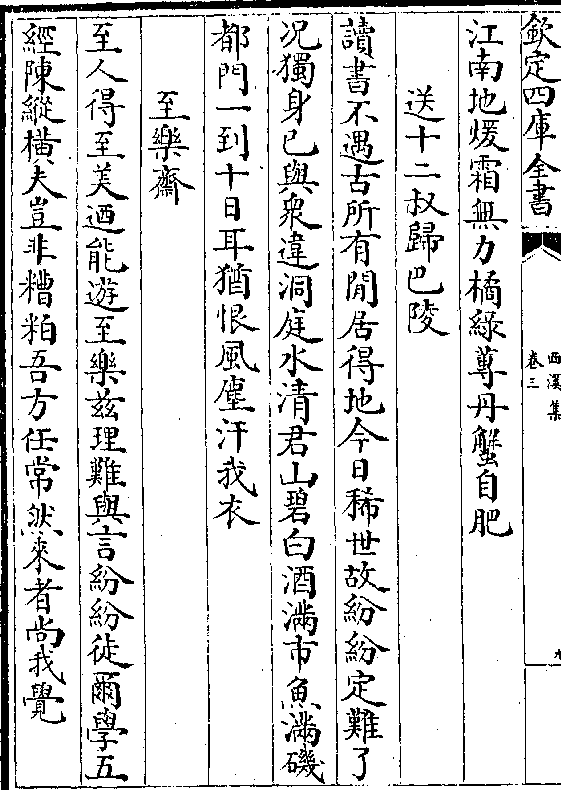 欽定四庫全書
西溪集
卷三
江南地煖霜無力橘綠蓴丹蟹自肥
送十二叔歸巴陵
讀書不遇古所有閒居得地今日稀世故紛紛定難了
況獨身已與衆違洞庭水清君山碧白酒滿市魚滿磯
都門一到十日耳猶恨風塵汗我衣
至樂齋
至人得至美迺能遊至樂兹理難與言紛紛徒爾學五
經陳縱橫夫豈非糟粕吾方任常然來者尚我覺